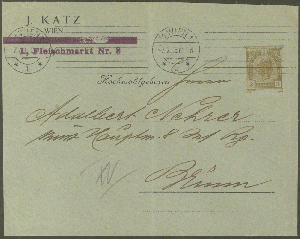 J. KATZ
WIEN
I., Fleischmarkt Nr. 8
Hochwohlgeboren Herrn
Adalbert Nehrer
Hauptm. 8 Inf Rg.
Brünn